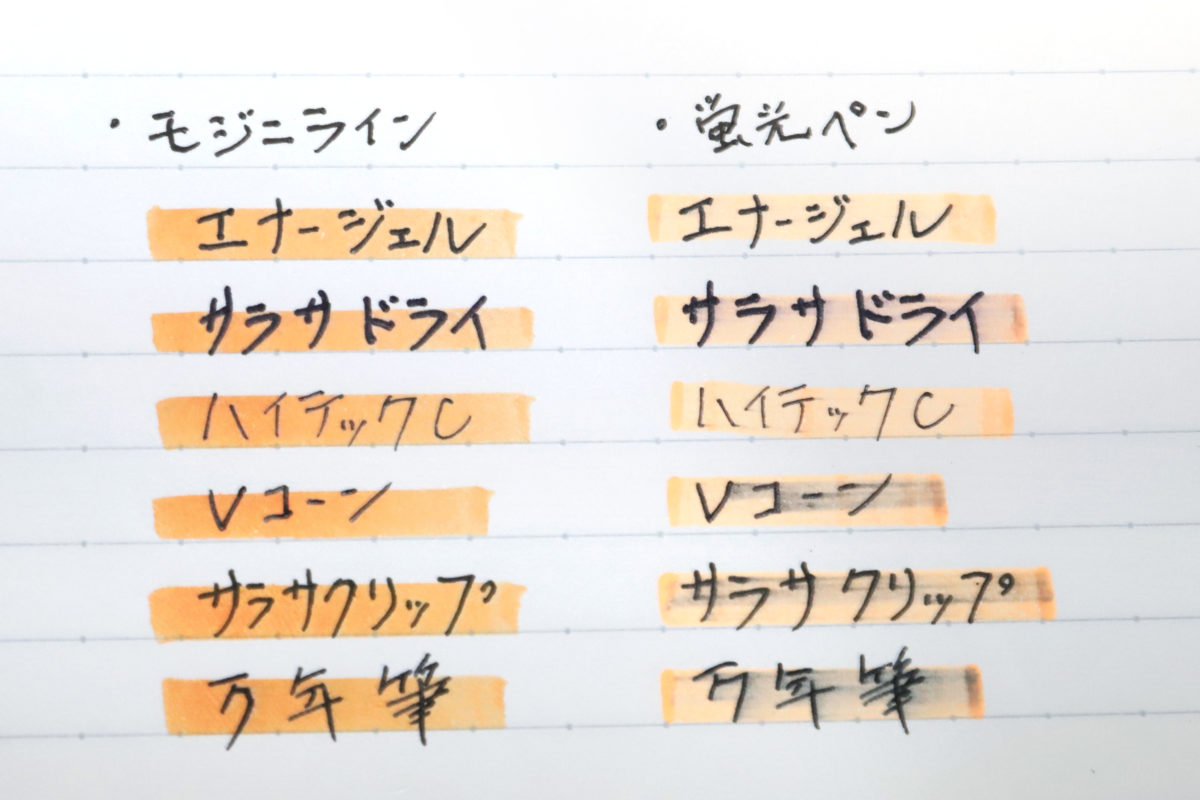 ・モジニライン
エナージェル
サラサドライ
ハイテックC
Vコーン
サラサクリップ
万年筆
・蛍光ペン
エナージェル
サラサドライ
ハイテックC
Vコーン
サラサクリップ
万年筆